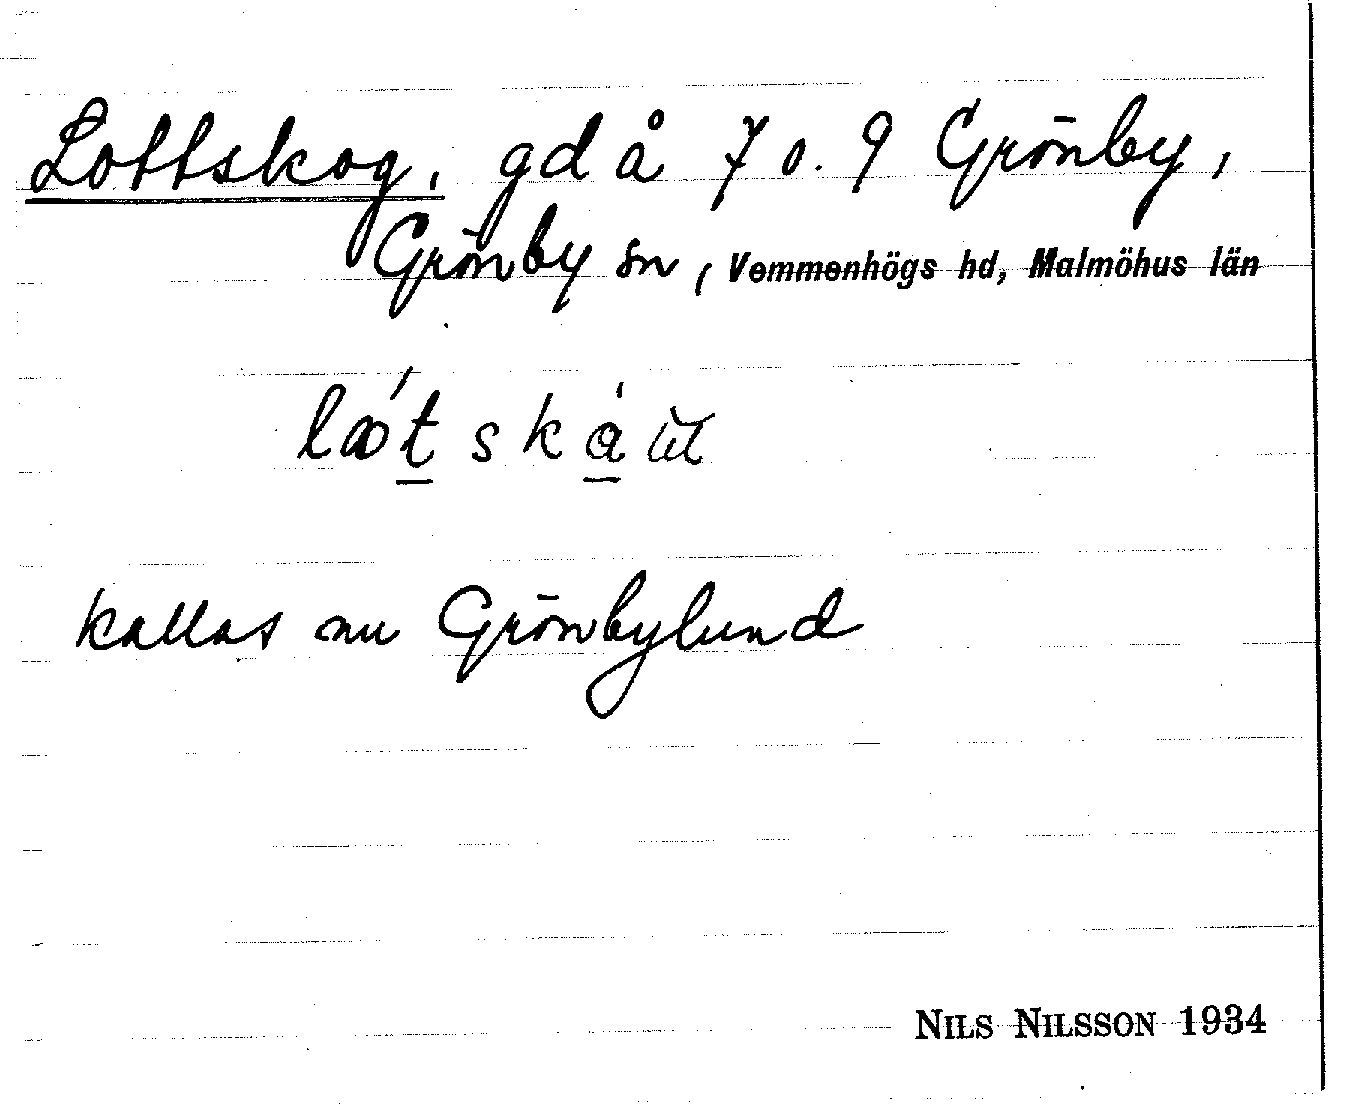 Lottskog, gd å 7 o. 9 Grönby,
Grönby sn, Vemmenhögs hd, Malmöhus län
kallas nu Grönbylund
NILS NILSSON 1934